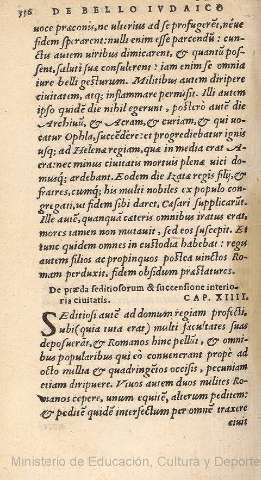 336 DE BELLO IVDAICO
uoce præconis, ne ulterius ad se profugerēt, néue
fidem sperarent: nulli enim esse parcendū: cun-
ctu autem uiribus dimicarent, & quantū pos-
sent, saluti suæ consulerent: iam enim se omnia
iure belli gesturum. Militibus autem diripere
ciuitatem, atq; inflammare permisit. Illi autem
ipso quidē die nihil egerunt, postero autē die
Archiuū, & Acram, & curiam, & qui uo-
catur Ophla, succēdēre: et progrediebatur ignis
usq; ad Helenæ regiam, quæ in media erat A-
cra: nec minus ciuitatis mortuis plenæ uici domi-
musq; ardebant. Eodem die Izatæ regis filij, &
fratres, cumq; his multi nobiles ex populo con-
gregati, ut fidem sibi daret, Cæsari supplicarūt.
Ille autē, quanquā cæteris omnibus iratus erat,
mores tamen non mutauit, sed eos suscepit. Et
tunc quidem omnes in custodia habebat: regis
autem filios ac propinquos postea uinctos Ro-
mam perduxit, fidem obsidum præstaturos.
De præda seditiosorum & succensione interio-
ria ciuitatis. CAP. XIIII.
SEditiosi autē ad domum regiam profecti,
ubi (quia tuta erat) multi facultates suas
deposuerāt, & Romanos hinc pellūt, & om-
nibus popularibus qui eò conuenerant propè ad
octo millia & quadringētos occisis, pecuniam
etiam diripuere. Viuos autem duos milites Ro-
manos cepere, unum equitē, alterum peditem:
& peditē quidē interfectum per omnē traxere
ciuit
Ministerio de Educación, Cultura y Deporte